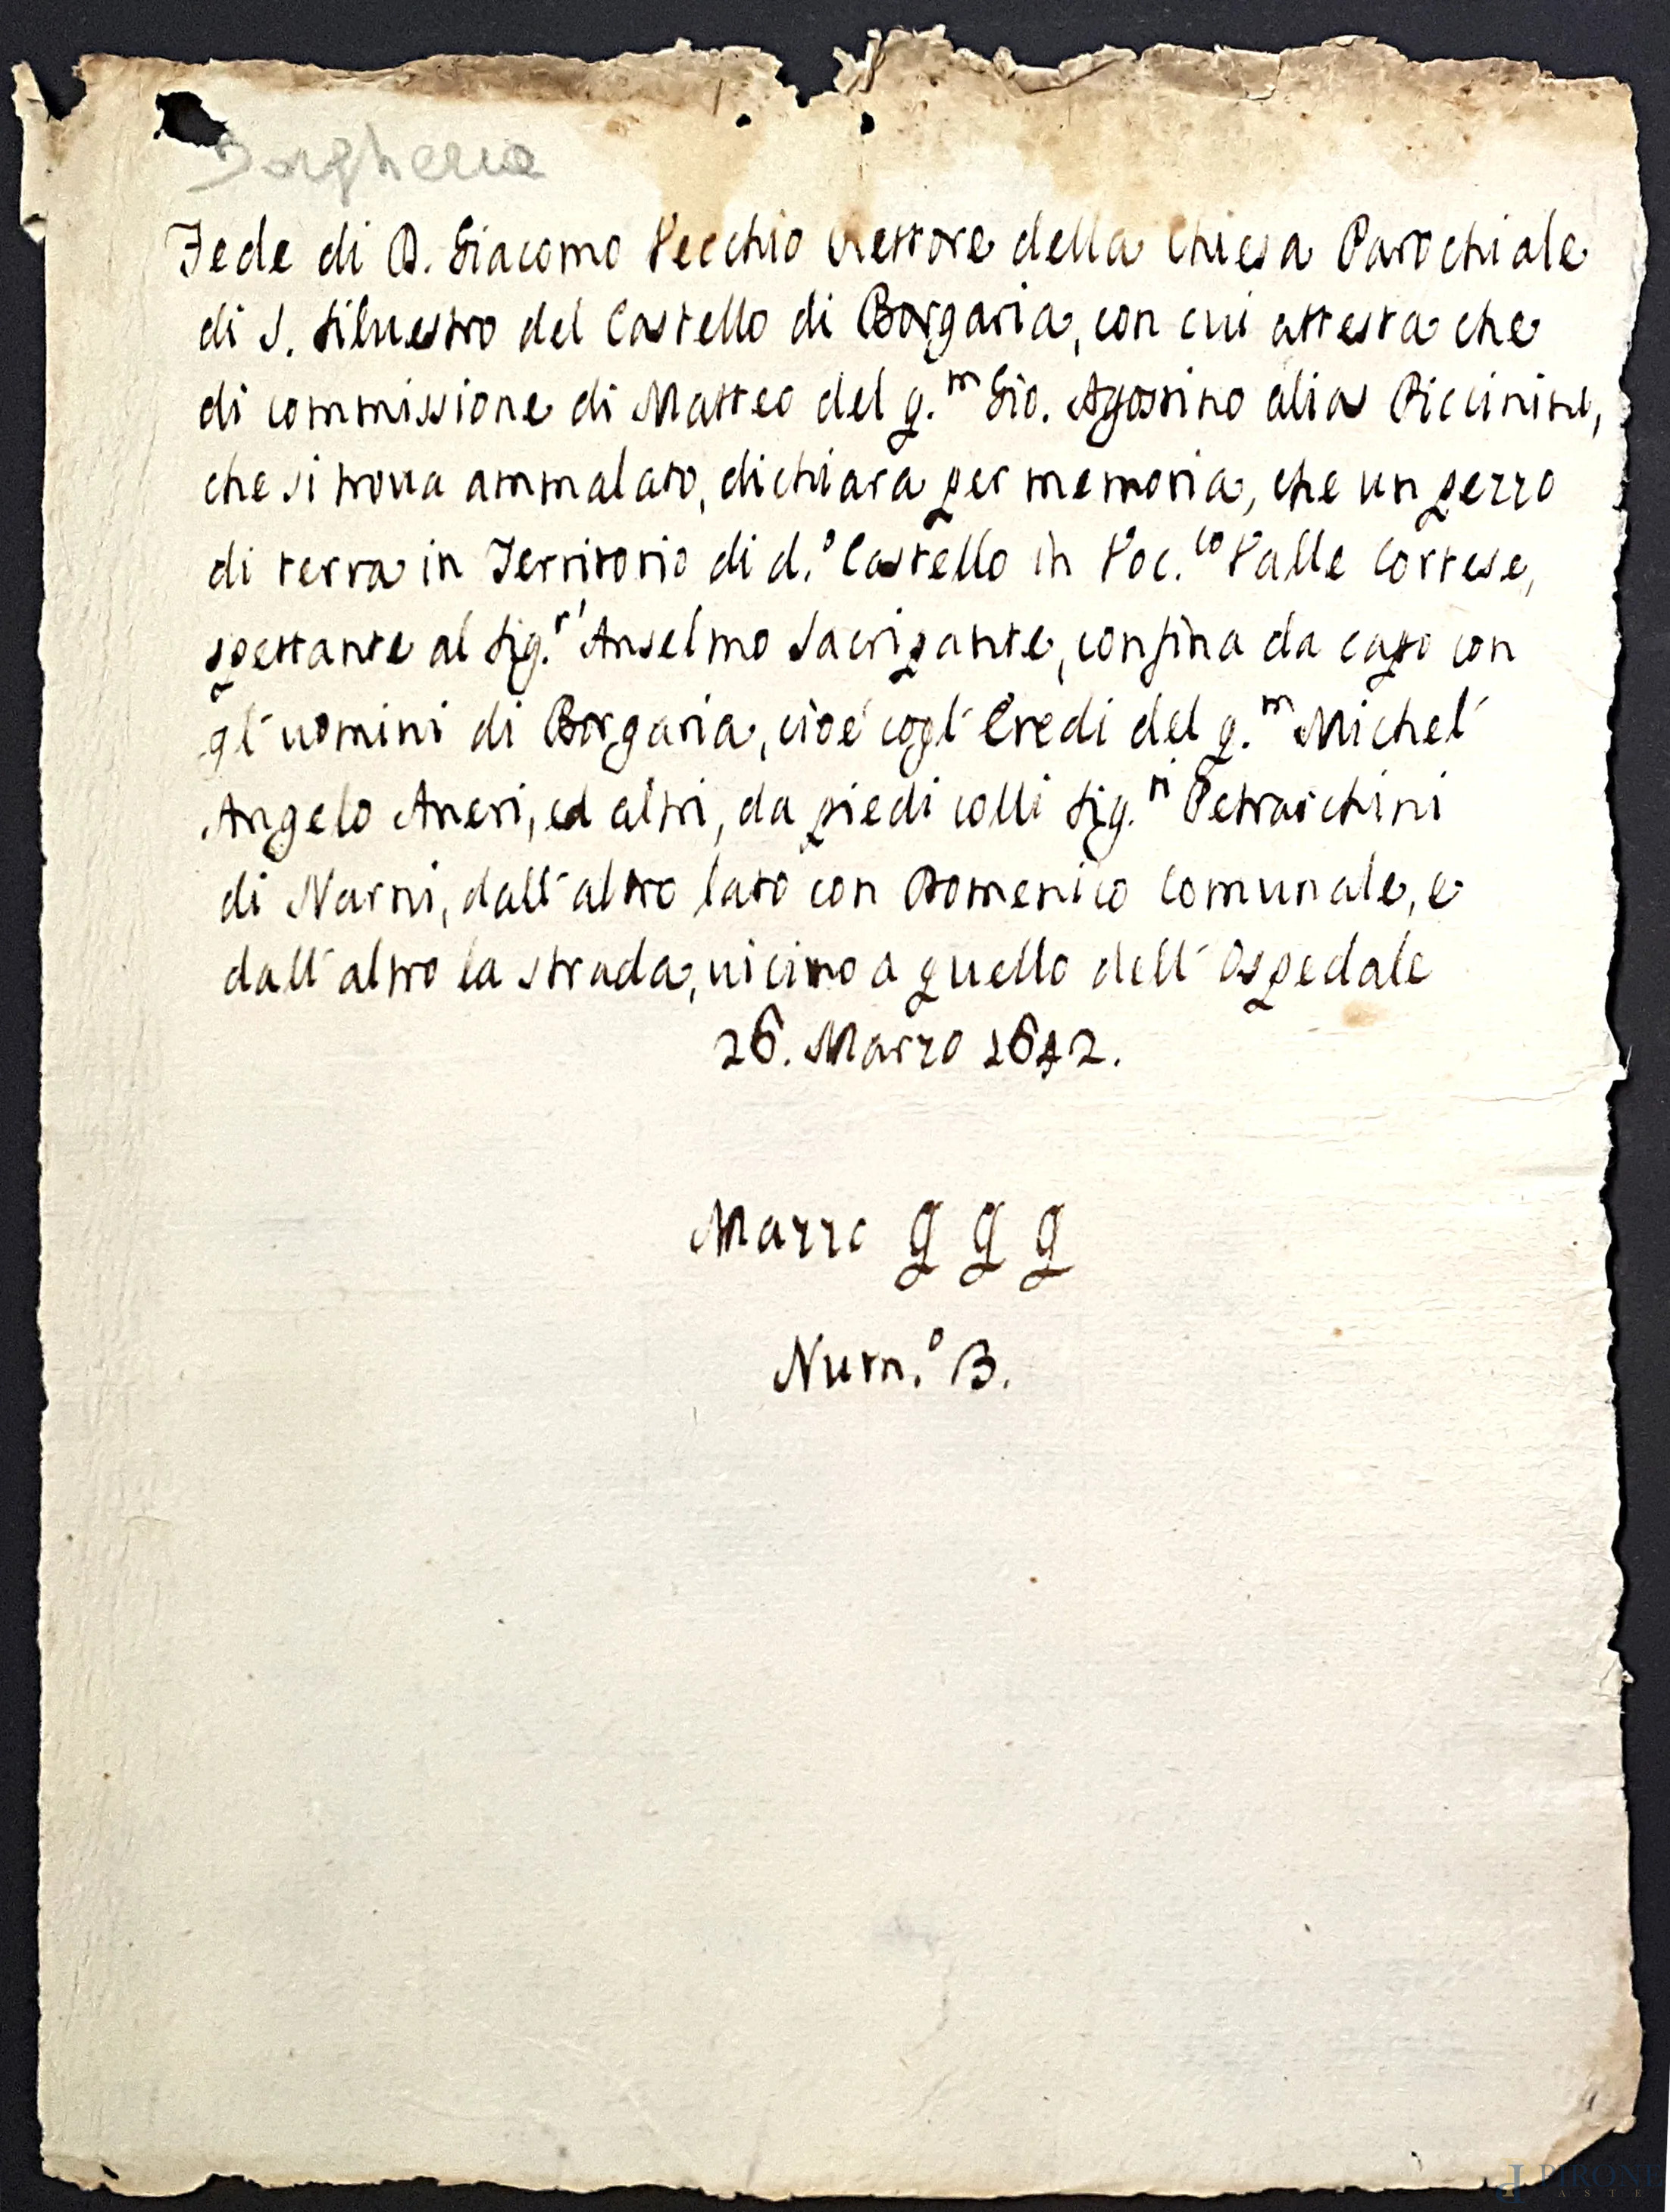 Borgheria
Fede di D. Giacomo Vecchio Rettore della Chiesa Parochiale
di S. Siluestro del Castello di Borgaria, con cui attesta che
di commissione di Matteo del q.m Gio. Agostino alias Piccinino,
che si troua ammalato, dichiara per memoria, che un pezzo
di terra in Territorio di d.o Castello in Voc.lo Valle Cortese,
spettante al Sig.r Anselmo Sacripante, confina da capo con
gl' uomini di Borgaria, cioè cogl' Eredi del q.m Michel'
Angelo Aneri, ed altri, da piedi colli Sig.ri Petrarchini
di Narni, dall' altro lato con Domenico Comunale, e
dall' altro la strada, uicino a quello dell' Ospedale
26. Marzo 1642.
Mazzo g g g
Num.o 13.
PIRONE
ASTE